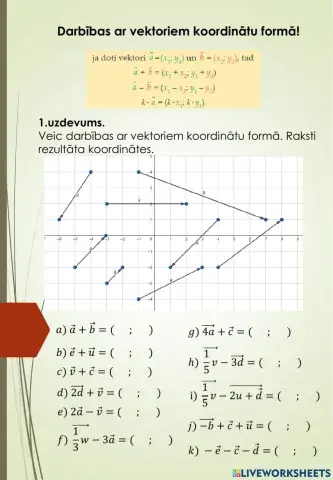 Darbības ar vektoriem koordinātu formā!
ja doti vektori a⃗=(x₁; y₁) un b⃗ = (x₂; y₂), tad
a⃗ + b⃗ = (x₁ + x₂; y₁ + y₂)
a⃗ − b⃗ = (x₁ − x₂; y₁ − y₂)
k · a⃗ = (k · x₁; k · y₁)
1.uzdevums.
Veic darbības ar vektoriem koordinātu formā. Raksti
rezultāta koordinātes.
a) a⃗ + b⃗ = ( ; )
b) e⃗ + u⃗ = ( ; )
c) v⃗ + c⃗ = ( ; )
d) 2d⃗ + v⃗ = ( ; )
e) 2a⃗ − v⃗ = ( ; )
f) 1/3 w⃗ − 3a⃗ = ( ; )
g) 4a⃗ + c⃗ = ( ; )
h) 1/5 v⃗ − 3d⃗ = ( ; )
i) 1/5 v⃗ − 2u + d⃗ = ( ; )
j) −b⃗ + c⃗ + u⃗ = ( ; )
k) − e⃗ − c⃗ − d⃗ = ( ; )
LIVEWORKSHEETS